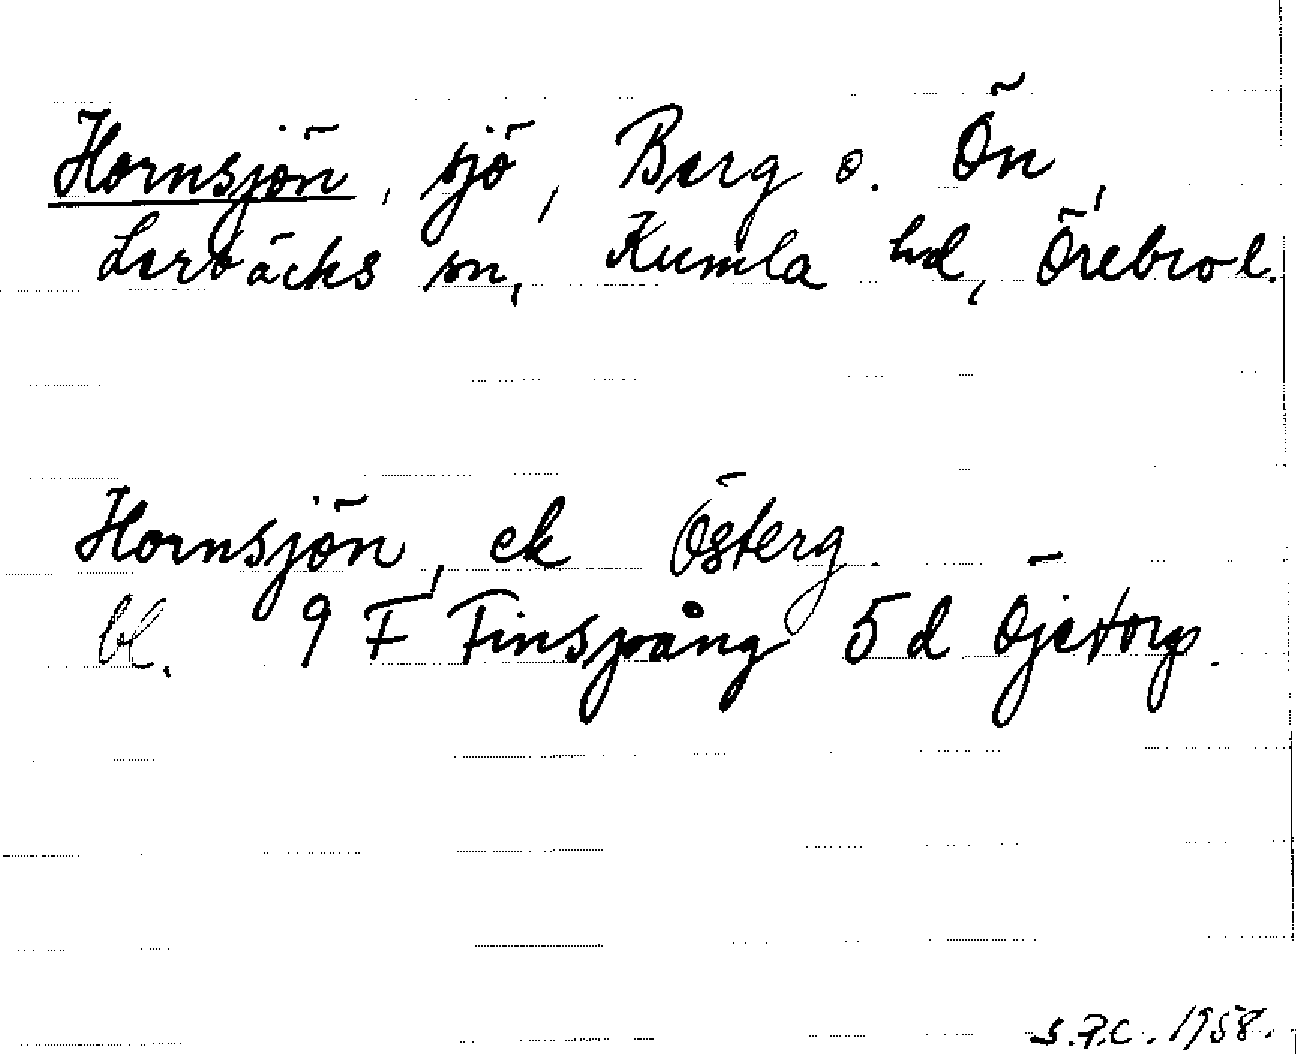 Hornsjön, sjö, Berg o. Ön,
Lerbäcks sn, Kumla hd, Örebro l.
Hornsjön, ek Österg.
bl. 9 F Finspång 5 d Öjetorp.
S.P.C. 1958.